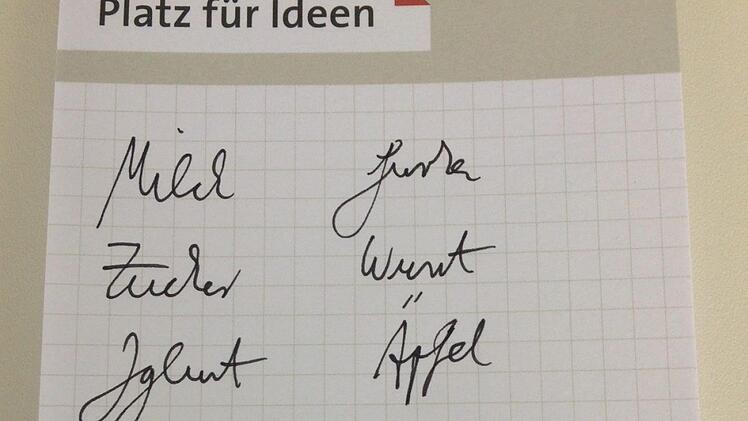 Platz für Ideen
Milch
Gurke
Zucker
Wurst
Joghurt
Äpfel